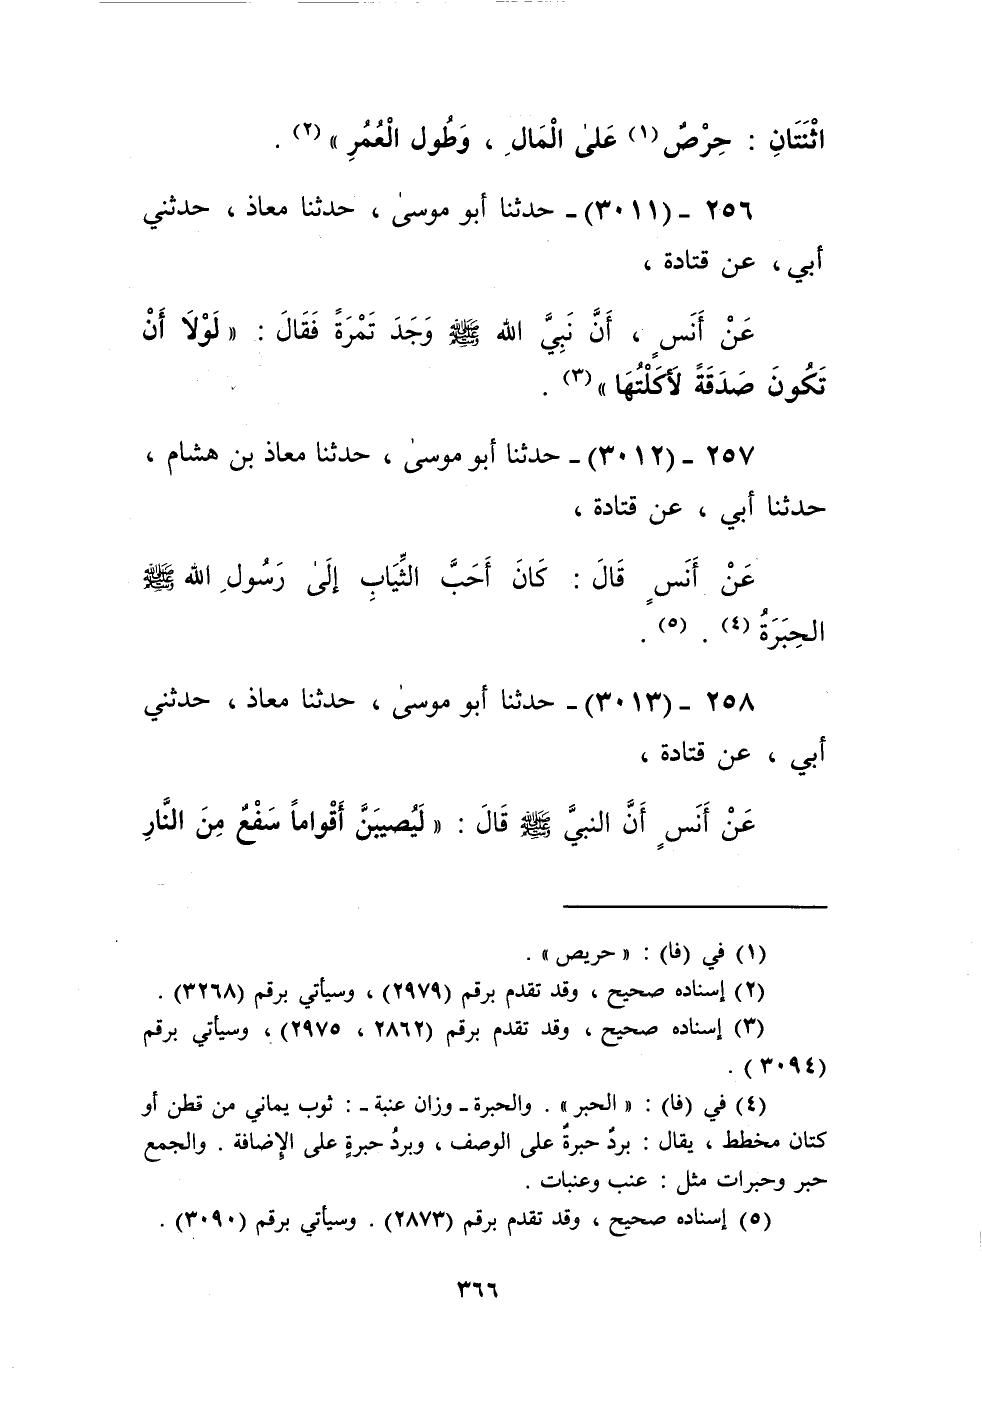 اثْنَتَانِ : حِرْصٌ (١) عَلىٰ الْمَالِ ، وَطُولِ الْعُمُرِ » (٢) .
٢٥٦ - (٣٠١١) - حدثنا أبو موسىٰ ، حدثنا معاذ ، حدثني
أبي ، عن قتادة ،
عَنْ أَنَسٍ ، أَنَّ نَبِيَّ الله ﷺ وَجَدَ تَمْرَةً فَقَالَ : « لَوْلَا أَنْ
تَكُونَ صَدَقَةً لأَكَلْتُهَا » (٣) .
٢٥٧ - (٣٠١٢) - حدثنا أبو موسىٰ ، حدثنا معاذ بن هشام ،
حدثنا أبي ، عن قتادة ،
عَنْ أَنَسٍ قَالَ : كَانَ أَحَبَّ الثِّيَابِ إِلَىٰ رَسُولِ الله ﷺ
الحِبَرَةُ (٤) . (٥) .
٢٥٨ - (٣٠١٣) - حدثنا أبو موسىٰ ، حدثنا معاذ ، حدثني
أبي ، عن قتادة ،
عَنْ أَنَسٍ أَنَّ النبيَّ ﷺ قَالَ : « لَيُصيبَنَّ أَقْواماً سَفْعٌ مِنَ النَّارِ
(١) في (فا) : « حريص » .
(٢) إسناده صحيح ، وقد تقدم برقم (٢٩٧٩) ، وسيأتي برقم (٣٢٦٨) .
(٣) إسناده صحيح ، وقد تقدم برقم (٢٨٦٢ ، ٢٩٧٥) ، وسيأتي برقم
(٣٠٩٤) .
(٤) في (فا) : « الحبر » . والحبرة - وزان عنبة - : ثوب يماني من قطن أو
كتان مخطط ، يقال : بردٌ حبرةٌ على الوصف ، وبردُ حبرةٍ على الإضافة . والجمع
حبر وحبرات مثل : عنب وعنبات .
(٥) إسناده صحيح ، وقد تقدم برقم (٢٨٧٣) . وسيأتي برقم (٣٠٩٠) .
٣٦٦